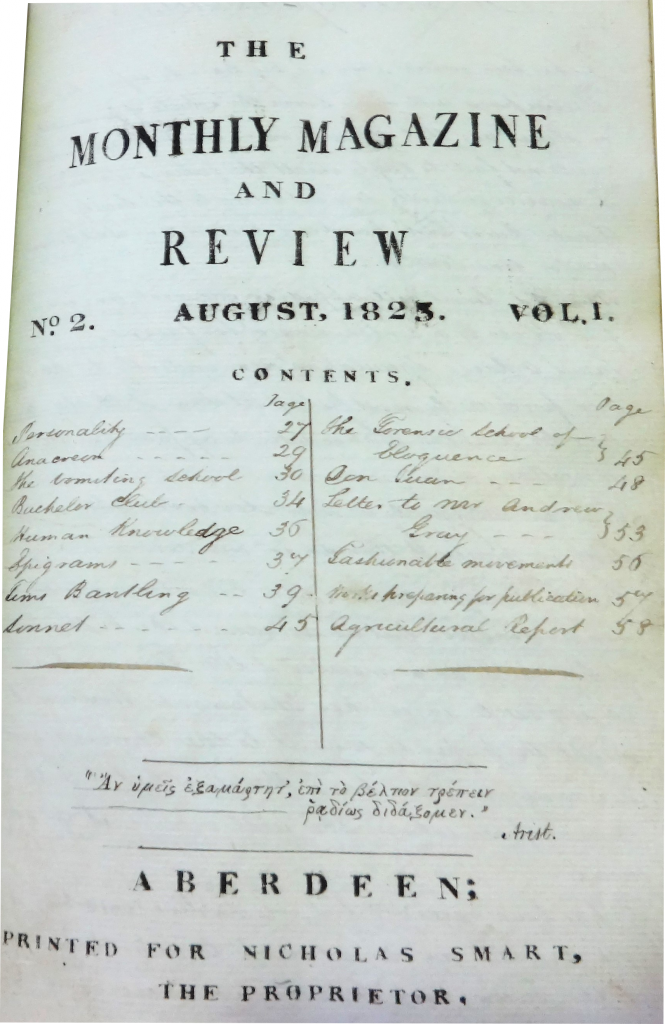 THE
MONTHLY MAGAZINE
AND
REVIEW
No. 2. AUGUST, 1825. VOL. I.
CONTENTS.
Page
Personality - - - - 27
Anacreon - - - - - 29
The vomiting School 30
Bachelor Club . 34
Human Knowledge 36
Epigrams - - - - - 37
Tims Bantling - - 39
Sonnet - - - - - - - 45
Page
The Forensic School of
Eloquence } 45
Don Juan - - - 48
Letter to Mr Andrew
Gray - - - } 53
Fashionable movements 56
Works preparing for publication 57
Agricultural Report 58
"Ἂν ὑμεῖς ἐξαμάρτητ', ἐπὶ τὸ βέλτιον τρέπειν
ῥᾳδίως διδάξομεν."
Arist.
ABERDEEN;
PRINTED FOR NICHOLAS SMART,
THE PROPRIETOR.